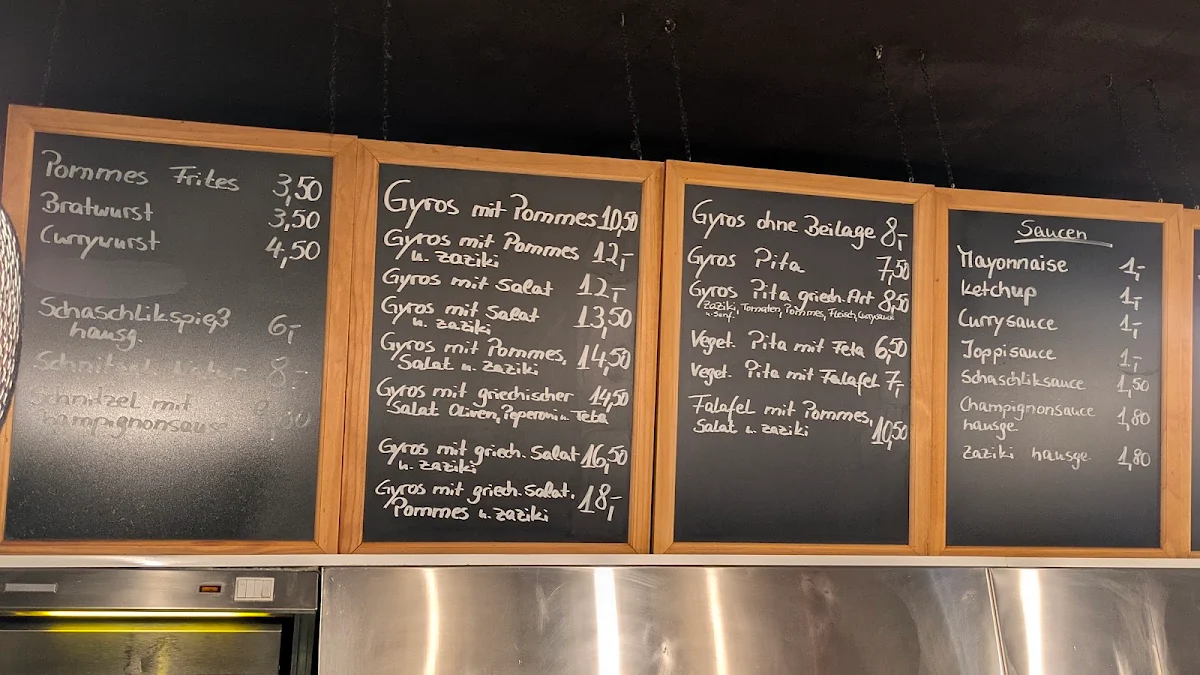 Pommes Frites 3,50
Bratwurst 3,50
Currywurst 4,50
Schaschlikspieß 6,-
hausg.
Schnitzel Natur 8,-
Schnitzel mit
Champignonsauce
Gyros mit Pommes 10,50
Gyros mit Pommes 12,-
u. zaziki
Gyros mit Salat 12,-
Gyros mit Salat 13,50
u. zaziki
Gyros mit Pommes, 14,50
Salat u. zaziki
Gyros mit griechischer 14,50
Salat Oliven, Peperoni u. Feta
Gyros mit griech. Salat 16,50
u. zaziki
Gyros mit griech. Salat, 18,-
Pommes u. zaziki
Gyros ohne Beilage 8,-
Gyros Pita 7,50
Gyros Pita griech. Art 8,50
Zaziki, Tomaten, Pommes, Fleisch, Currysauce
u. Senf.
Veget. Pita mit Feta 6,50
Veget. Pita mit Falafel 7,-
Falafel mit Pommes, 10,50
Salat u. zaziki
Saucen
Mayonnaise 1,-
ketchup 1,-
Currysauce 1,-
Joppisauce 1,-
Schaschliksauce 1,50
Champignonsauce 1,80
hausge.
zaziki hausge. 1,80